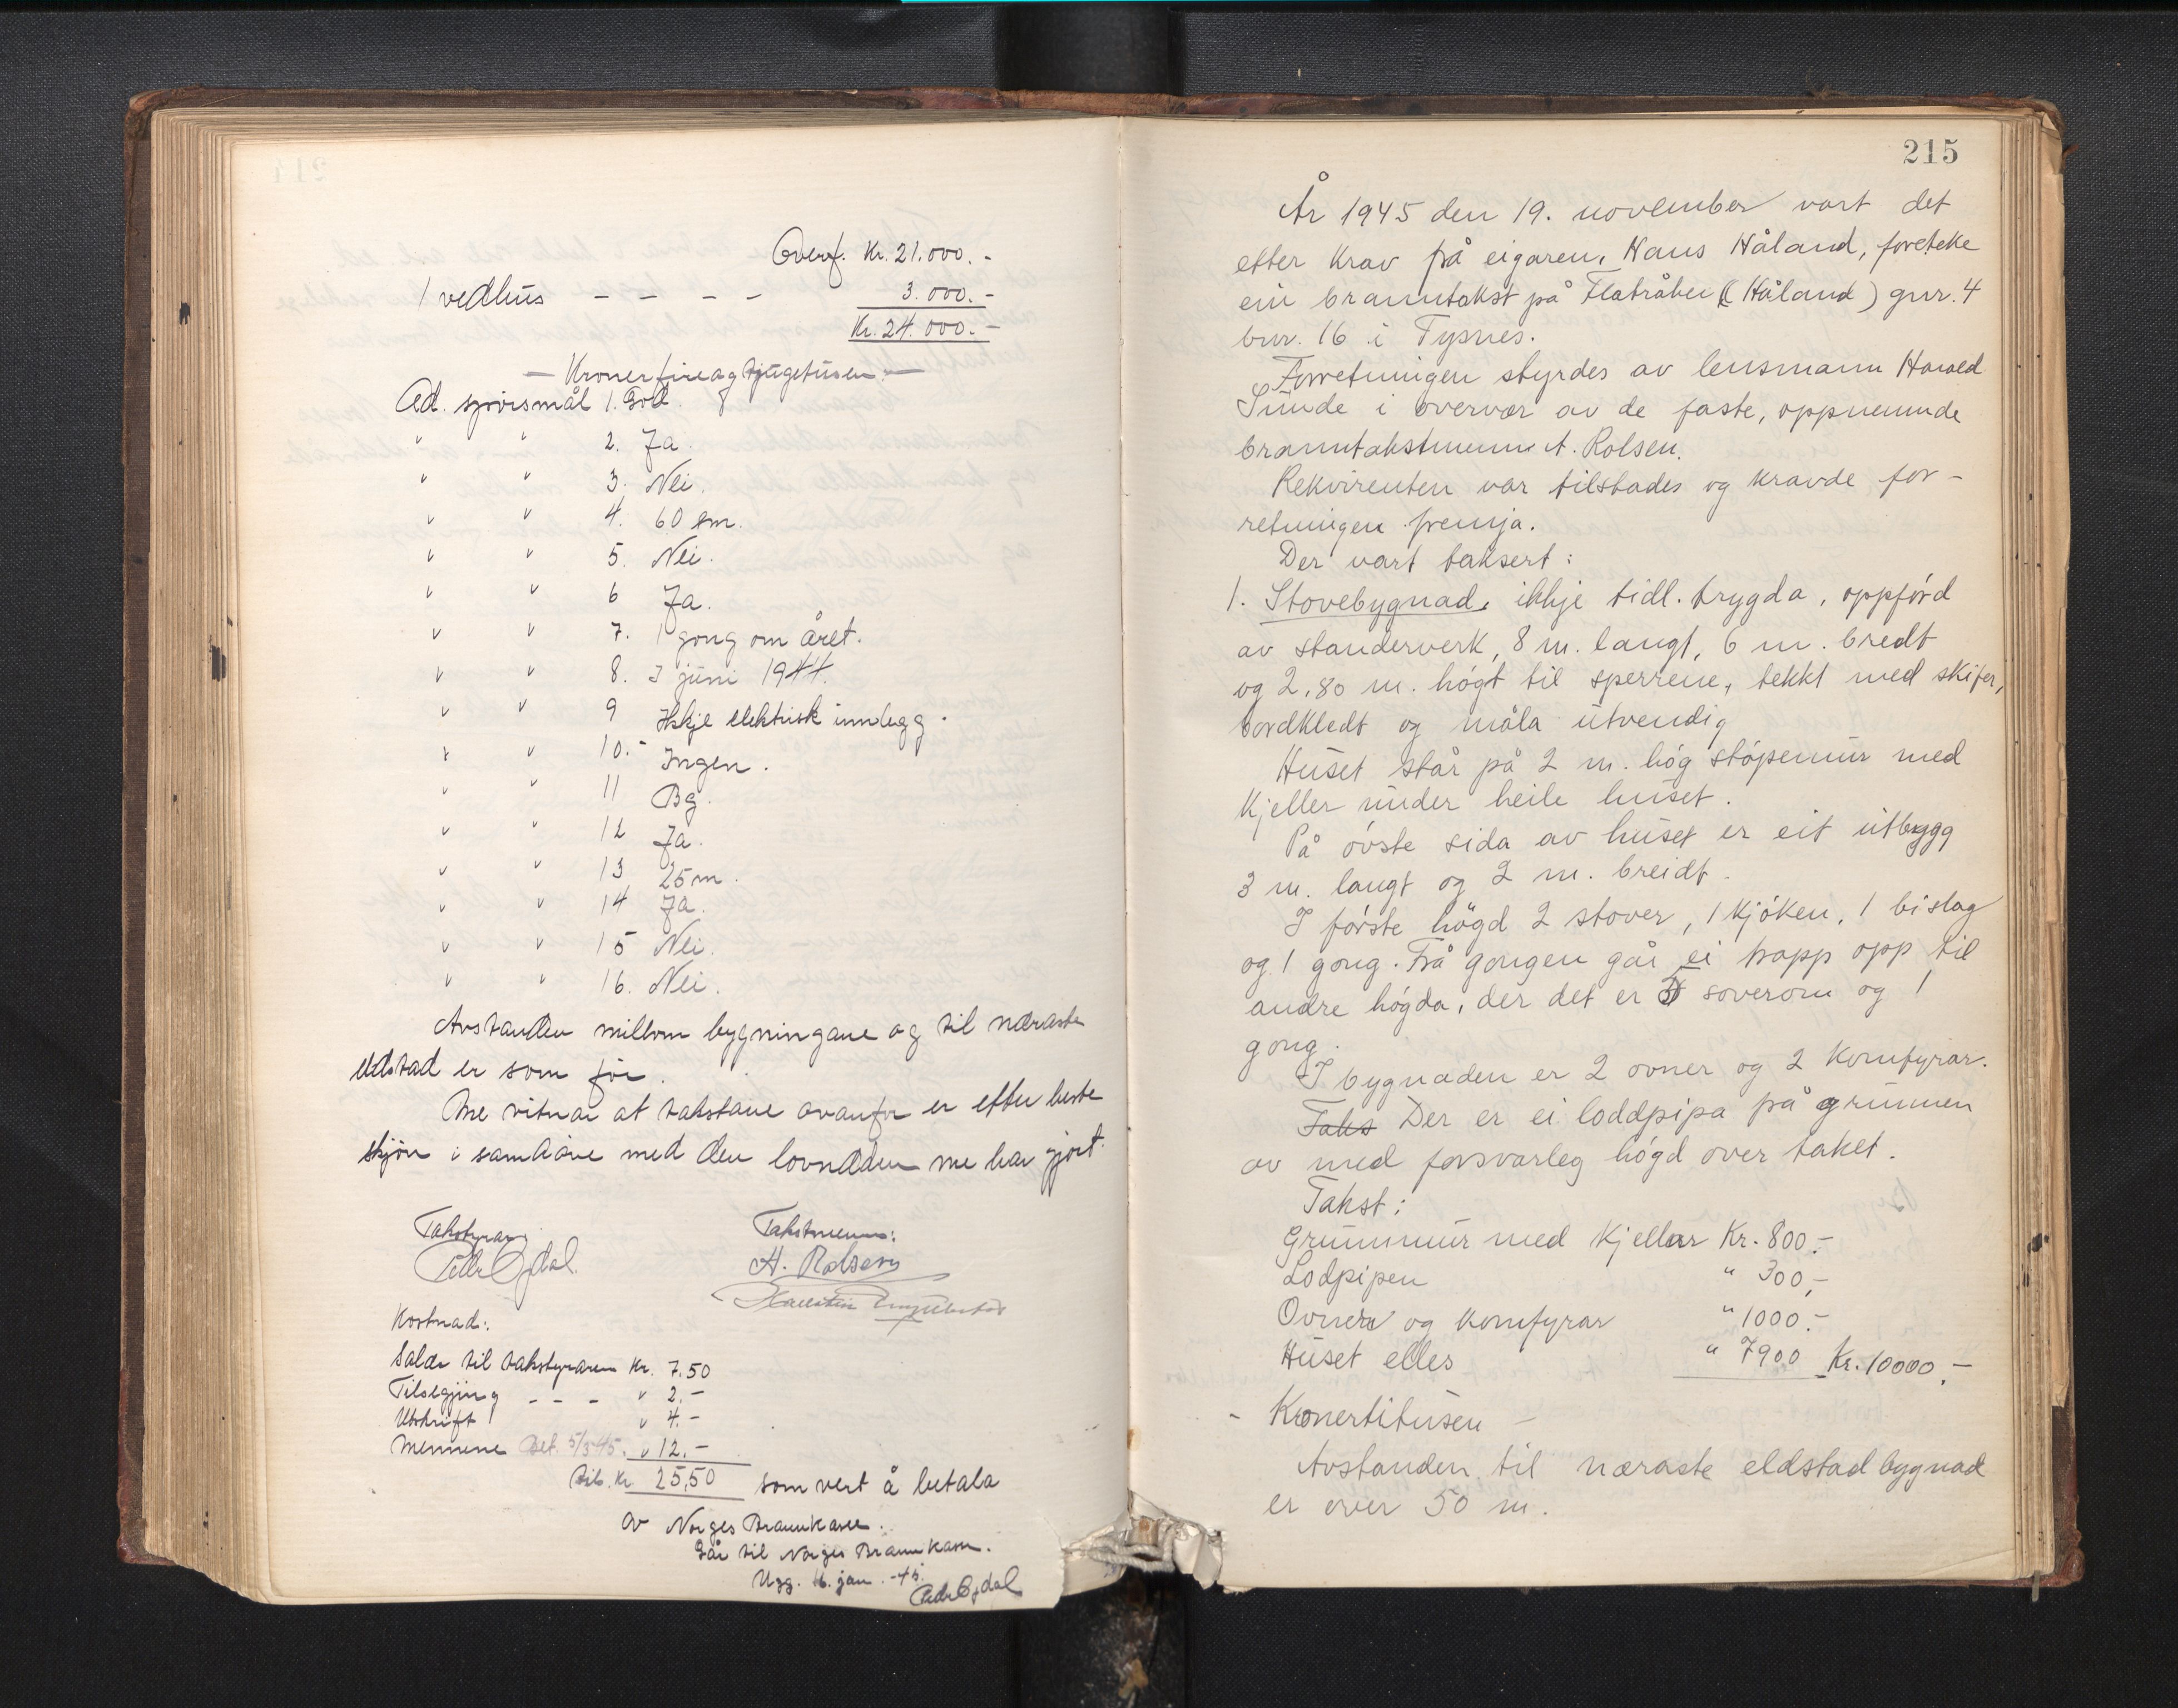 Overf. Kr. 21.000.-
1 vedhus - - - - 3.000.-
Kr. 24.000.-
- Kroner fireogtjugetusen. -
Ad. spörsmål 1. God.
" " 2. Ja.
" " 3. Nei.
" " 4. 60 sm.
" " 5. Nei.
" " 6 Ja.
" " 7. 1 gong om året.
" " 8. I juni 1944.
" " 9 Ikkje elektrisk innlegg.
" " 10.- Ingen.
" " 11 Bg.
" " 12 Ja.
" " 13 25 m.
" " 14 Ja.
" " 15 Nei.
" " 16. Nei.
Avstanden millom bygningane og til næraste
eldstad er som för.
Me vitnar at takstane ovanfor er etter beste
skjön i samhöve med den lovnaden me har gjort.
Takstyrar: Takstmenn:
A. Rolsen
Kostnad:
Salær til takstyraren Kr. 7.50
Tilseging - - - " 2.-
Utskrift " 4.-
Mennene Bet. 5/3 45. " 12.-
Tils. Kr 25,50 som vert å betala
av Norges Brannkasse.
Går til Norges Brannkasse.
Ugg. 16. jan. -45.
215
År 1945 den 19. november vart det
etter krav på eigaren, Hans Håland, foreteke
ein branntakst på Flatråker (Håland) gnr. 4
bnr. 16 i Tysnes.
Forretningen styrdes av lensmann Harald
Sunde i overvær av de faste, oppnemnde
branntakstmenn A. Rolsen.
Rekvirenten var tilstades og kravde for-
retningen fremja.
Der vart taksert:
1. Stovebygnad, ikkje tidl. trygda, oppförd
av standerverk, 8 m. langt, 6 m. bredt
og 2,80 m. högt til sperrene, tekkt med skifer,
bordkledt og måla utvendig
Huset står på 2 m. hög stöpemur med
kjeller under heile huset.
På övste sida av huset er eit utbygg
3 m. langt og 2 m. breidt.
I förste högd 2 stover, 1 kjöken, 1 bislag
og 1 gong. Frå gongen går ei trapp opp til
andre högda, der det er 3 soverom og 1
gong.
I bygnaden er 2 ovner og 2 komfyrar.
Taks Der er ei loddpipa på grunnen
av med forsvarleg högd over taket.
Takst:
Grunnmur med kjeller Kr. 800.-
Lodpipen " 300,-
Ovner og komfyrar " 1000.-
Huset elles " 7900 Kr. 10000,-
- Kronertitusen -
Avstanden til næraste eldstadbygnad
er over 50 m.